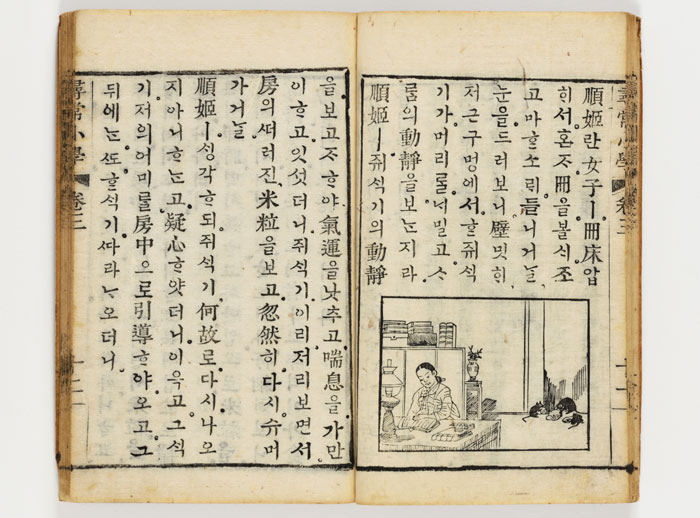 順姬란女子ㅣ冊床압
희셔혼ᄌ冊을볼ᄉᆡ조
고마ᄒᆞᆫ소ᄅᆡ들니거ᄂᆞᆯ
눈을드러보니壁밋ᄒᆡ
져근구멍에셔ᄒᆞᆫ쥐ᄉᆡᆨ
기가머리ᄅᆞᆯ내밀고ᄉᆞ
ᄅᆞᆷ의動靜을보ᄂᆞᆫ지라
順姬ㅣ쥐ᄉᆡᆨ기의動靜
尋常小學 卷三
十二
을보고ᄌᆞᄒᆞ야氣運을낫추고喘息을가만
이ᄒᆞ고잇섯더니쥐ᄉᆡᆨ기이리져리보면셔
房의ᄯᅥ러진米粒을보고忽然히다시슈머
가거ᄂᆞᆯ
順姬ㅣᄉᆡᆼ각ᄒᆞ되쥐ᄉᆡᆨ기何故로다시나오
지아니ᄒᆞᄂᆞᆫ고疑心ᄒᆞ얏더니이윽고그ᄉᆡᆨ
기져의어미ᄅᆞᆯ房中으로引導ᄒᆞ야오고그
뒤에ᄂᆞᆫᄯᅩᄒᆞᆫᄉᆡᆨ기ᄯᅡ라오더니
尋常小學 卷三